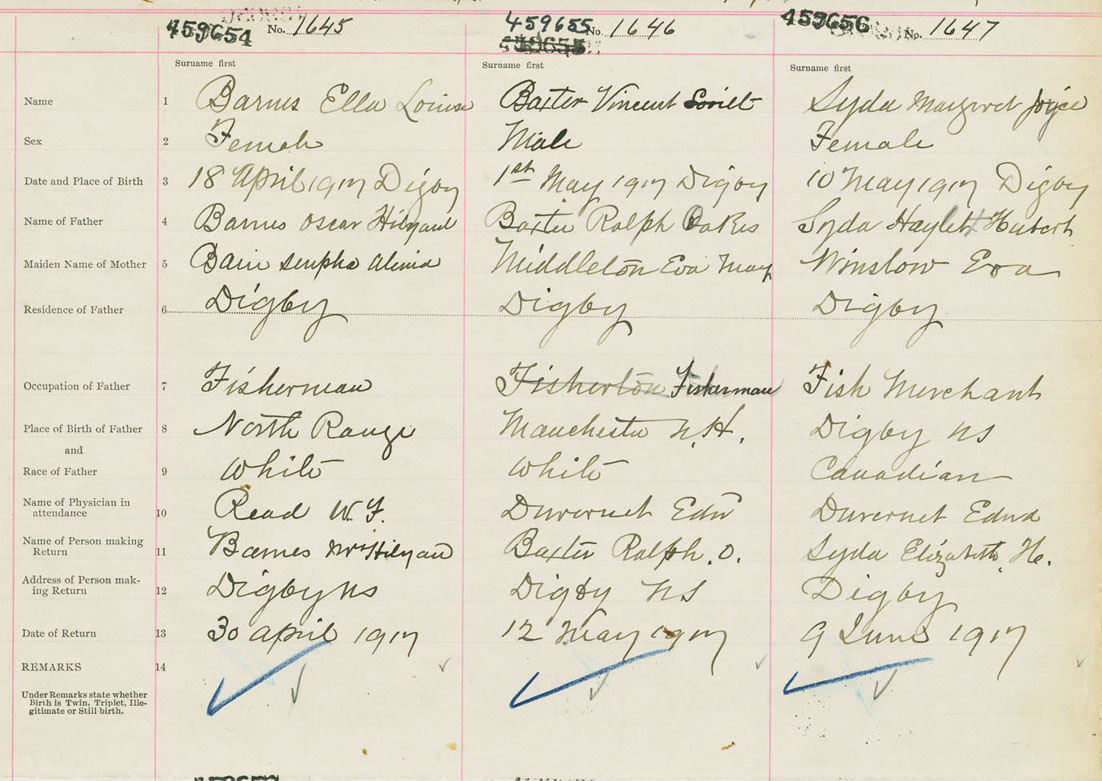 459654 No. 1645 459655 No. 1646 459656 No. 1647
459655
Surname first Surname first Surname first
Name 1 Barnes Ella Louise Baxter Vincent Syda Margaret Joyce
Sex 2 Female Male Female
Date and Place of Birth 3 18 April 1917 Digby 1st May 1917 Digby 10 May 1917 Digby
Name of Father 4 Barnes Oscar Hilyard Baxter Ralph Oakes Syda Haylett Hubert
Maiden Name of Mother 5 Bain Middleton Eva May Winslow Eva
Residence of Father 6 Digby Digby Digby
Occupation of Father 7 Fisherman Fisherton Fisherman Fish Merchant
Place of Birth of Father 8 North Range Manchester N.H. Digby NS
and
Race of Father 9 White White Canadian
Name of Physician in
attendance 10 Read W.F. Duvernet Edw Duvernet Edwd
Name of Person making
Return 11 Barnes Mrs Hilyard Baxter Ralph.O. Syda Elizabeth, He.
Address of Person mak-
ing Return 12 Digby NS Digby NS Digby
Date of Return 13 30 April 1917 12 May 1917 9 June 1917
REMARKS 14
Under Remarks state whether
Birth is Twin, Triplet, Ille-
gitimate or Still-birth.